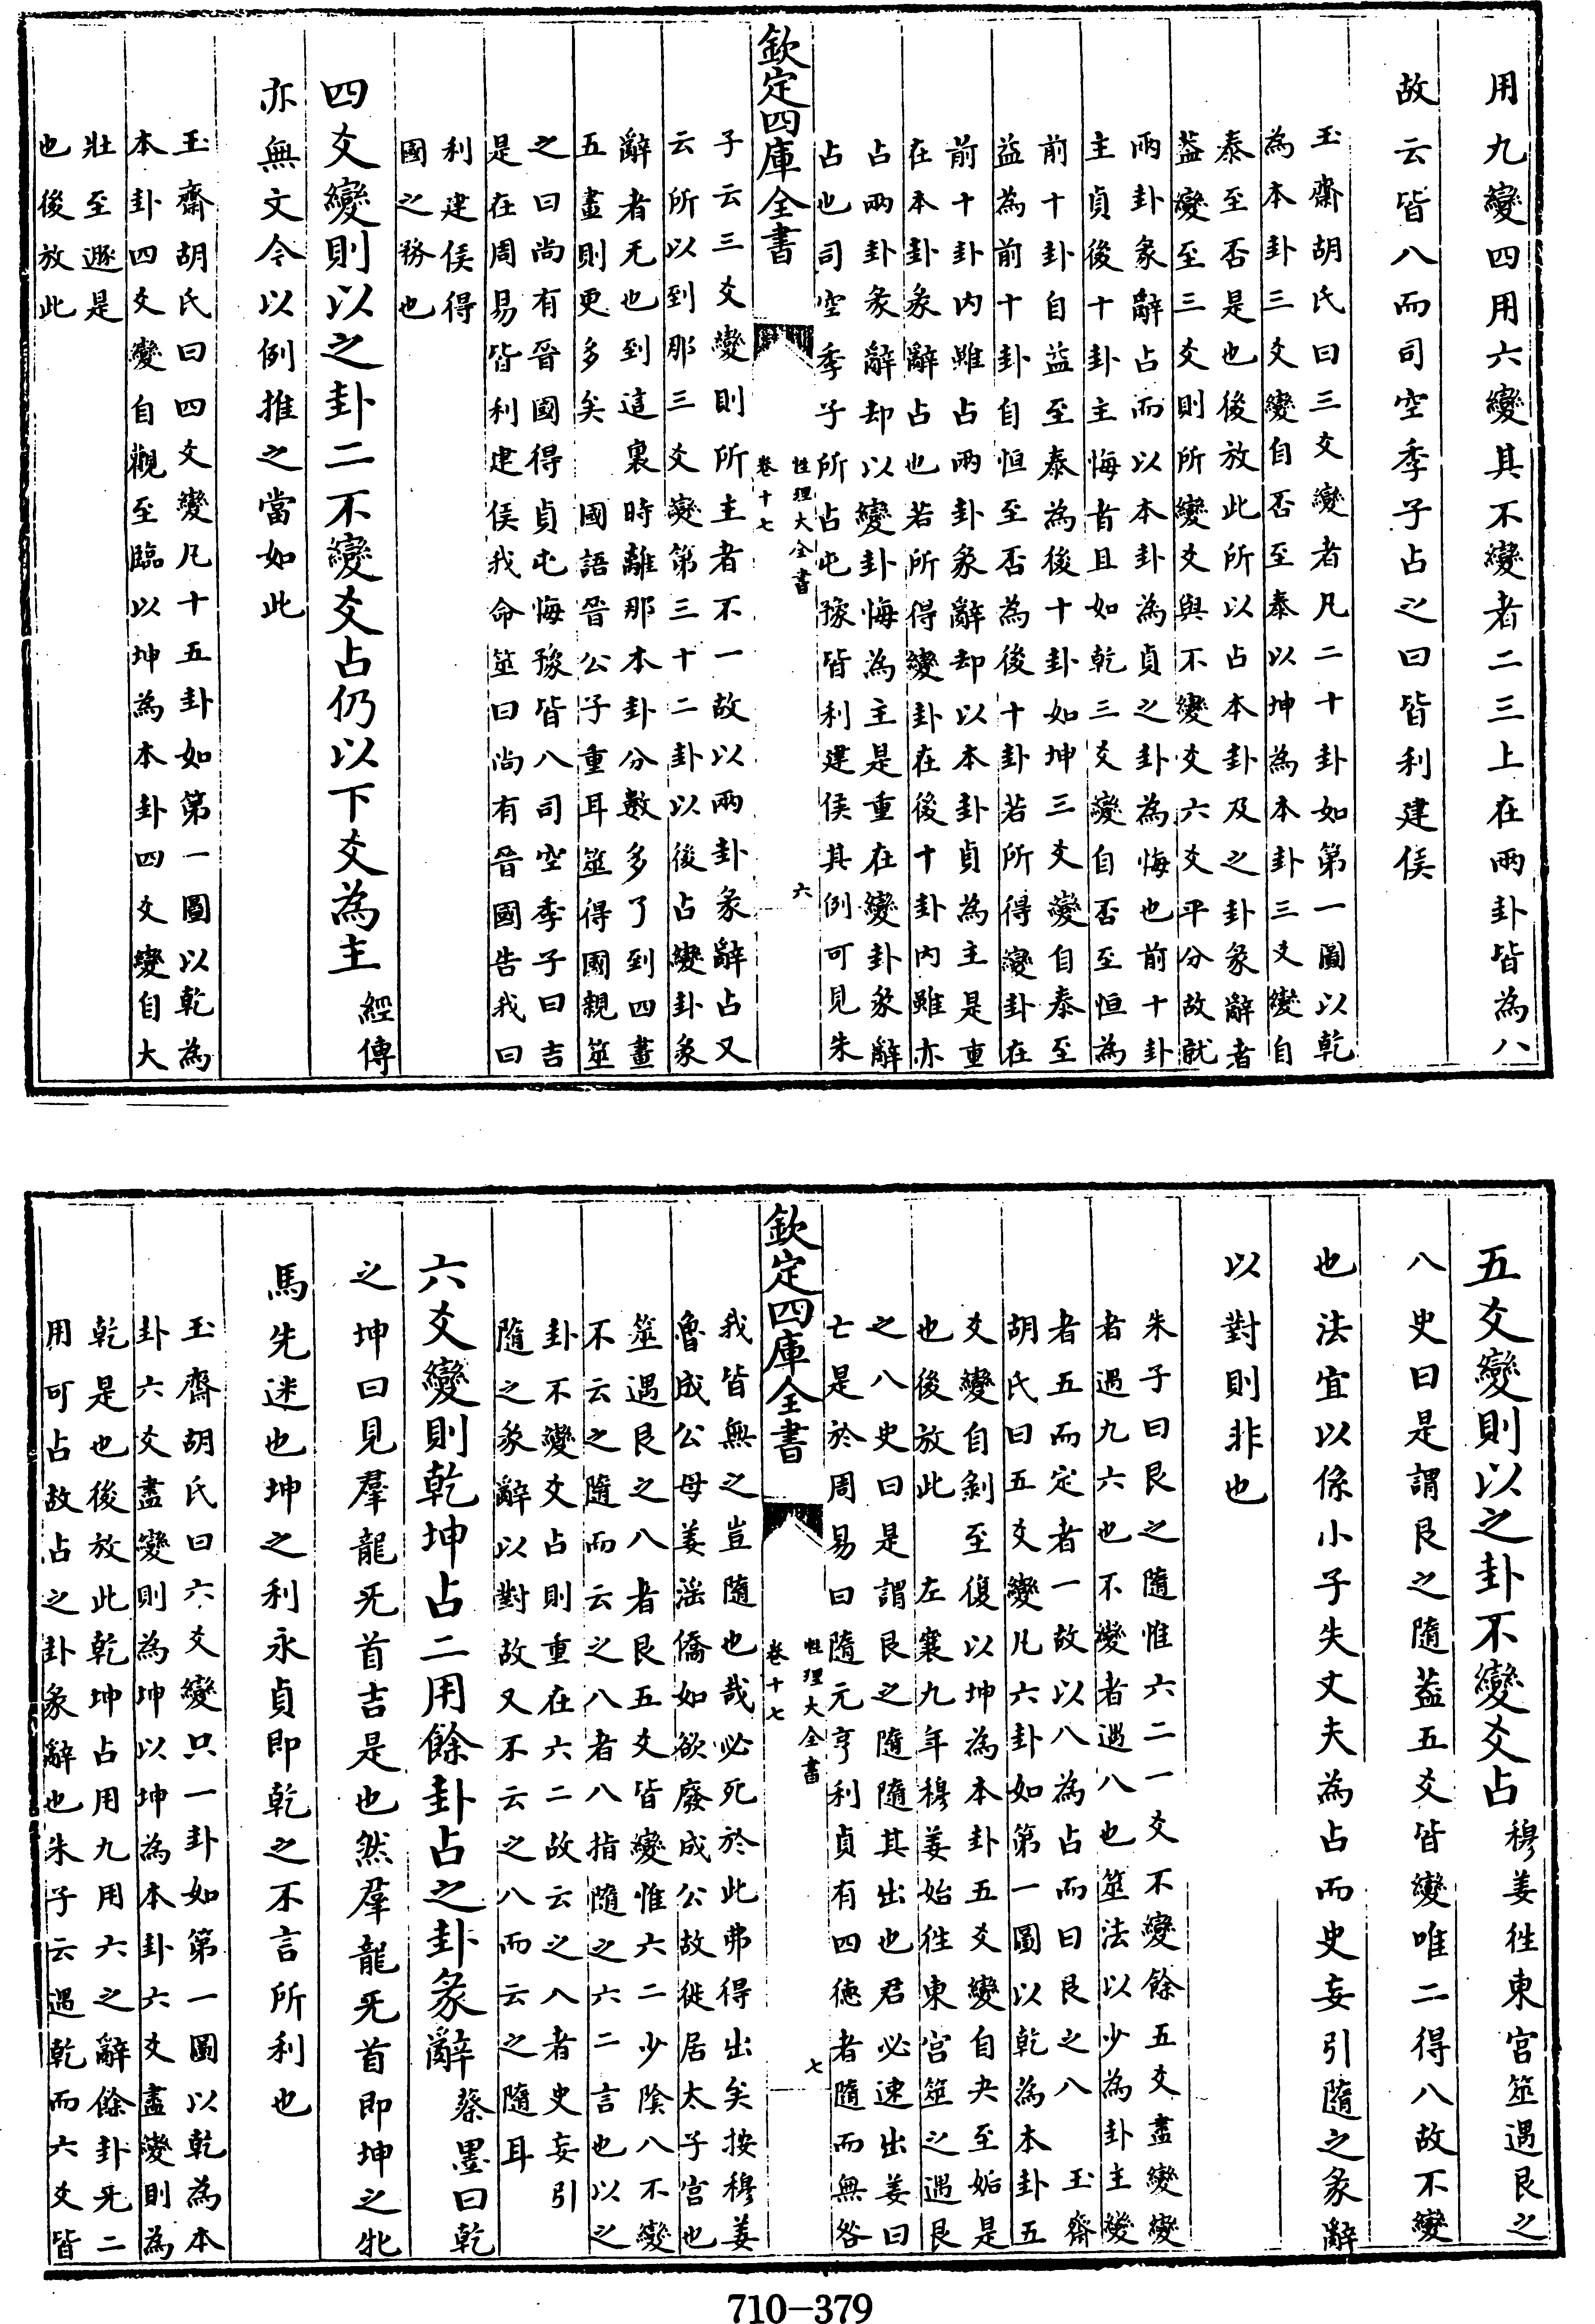 用九變四用六變其不變者二三上在兩卦皆為八
故云皆八而司空季子占之曰皆利建侯
玉齋胡氏曰三爻變者凡二十卦如第一圖以乾
為本卦三爻變自否至泰以坤為本卦三爻變自
泰至否是也後放此所以占本卦及之卦彖辭者
葢變至三爻則所變爻與不變爻六爻平分故就
兩卦彖辭占而以本卦為貞之卦為悔也前十卦
主貞後十卦主悔者且如乾三爻變自否至恒為
前十卦自益至泰為後十卦如坤三爻變自泰至
益為前十卦自恒至否為後十卦若所得變卦在
前十卦内雖占兩卦彖辭却以本卦貞為主是重
在本卦彖辭占也若所得變卦在後十卦内雖亦
占兩卦彖辭却以變卦悔為主是重在變卦彖辭
占也司空季子所占屯豫皆利建侯其例可見朱
欽定四庫全書
性理大全書
卷十七
六
子云三爻變則所主者不一故以兩卦彖辭占又
云所以到那三爻變第三十二卦以後占變卦彖
辭者无也到這裏時離那本卦分數多了到四畫
五畫則更多矣 國語晉公子重耳筮得國親筮
之曰尚有晉國得貞屯悔豫皆八司空季子曰吉
是在周易皆利建侯我命筮曰尚有晉國告我曰
利建侯得
國之務也
四爻變則以之卦二不變爻占仍以下爻為主經傳
亦無文今以例推之當如此
玉齋胡氏曰四爻變凡十五卦如第一圖以乾為
本卦四爻變自觀至臨以坤為本卦四爻變自大
壯至遯是
也後放此
五爻變則以之卦不變爻占穆姜徃東宫筮遇艮之
八史曰是謂艮之隨葢五爻皆變唯二得八故不變
也法宜以係小子失丈夫為占而史妄引隨之彖辭
以對則非也
朱子曰艮之隨惟六二一爻不變餘五爻盡變變
者遇九六也不變者遇八也筮法以少為卦主變
者五而定者一故以八為占而曰艮之八 玉齋
胡氏曰五爻變凡六卦如第一圖以乾為本卦五
爻變自剝至復以坤為本卦五爻變自夬至姤是
也後放此 左襄九年穆姜始徃東宫筮之遇艮
之八史曰是謂艮之隨隨其出也君必速出姜曰
亡是於周易曰隨元亨利貞有四徳者隨而無咎
欽定四庫全書
性理大全書
卷十七
七
我皆無之豈隨也哉必死於此弗得出矣按穆姜
魯成公母姜淫僑如欲廢成公故徙居太子宫也
筮遇艮之八者艮五爻皆變惟六二少陰八不變
不云之隨而云之八者八指隨之六二言也以之
卦不變爻占則重在六二故云之八者史妄引
隨之彖辭以對故又不云之八而云之隨耳
六爻變則乾坤占二用餘卦占之卦彖辭蔡墨曰乾
之坤曰見羣龍旡首吉是也然羣龍旡首即坤之牝
馬先迷也坤之利永貞即乾之不言所利也
玉齋胡氏曰六爻變只一卦如第一圖以乾為本
卦六爻盡變則為坤以坤為本卦六爻盡變則為
乾是也後放此乾坤占用九用六之辭餘卦旡二
用可占故占之卦彖辭也朱子云遇乾而六爻皆
710-379